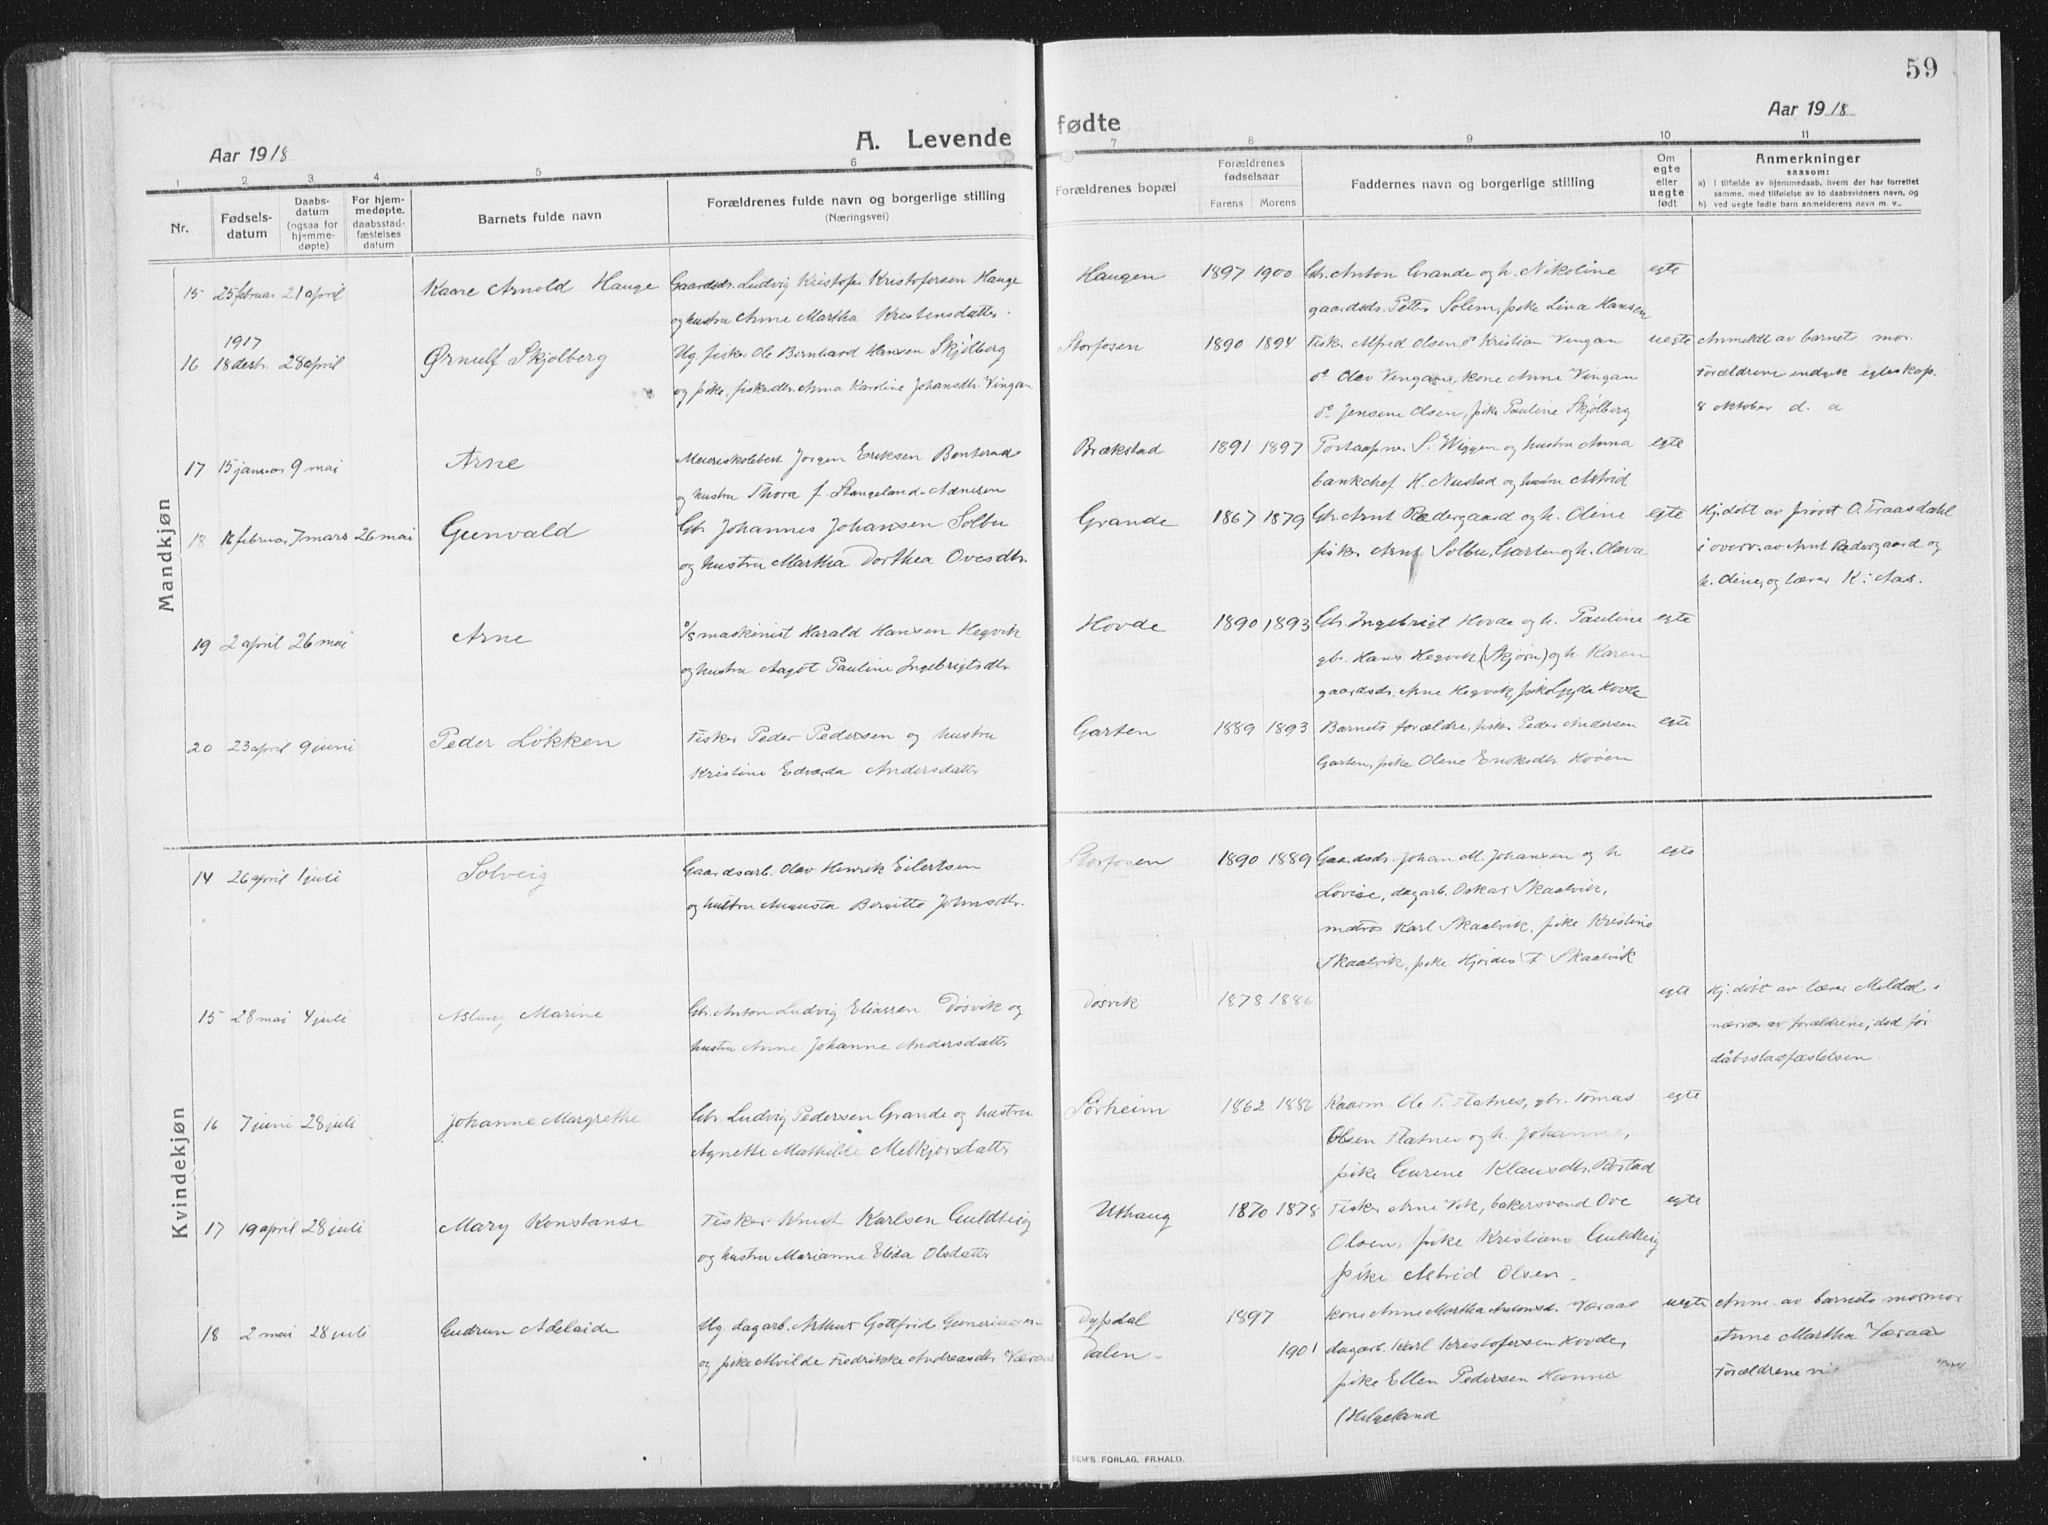 59
Aar 1918
A. Levende
fødte
Aar 1918
1 2 3 4 5 6 7 8 9 10 11
Nr.
Fødsels-
datum
Daabs-
datum
(ogsaa for
hjemme-
døpte)
For hjem-
medøpte,
daabsstad-
fæstelses
datum
Barnets fulde navn
Forældrenes fulde navn og borgerlige stilling
(Næringsvei)
Forældrenes bopæl
Forældrenes
fødselsaar
Farens Morens
Faddernes navn og borgerlige stilling
Om
egte
eller
uegte
født
Anmerkninger
saasom:
a) i tilfælde av hjemmedaab, hvem der har forrettet
samme, med tilføielse av to daabsvidners navn, og
b) ved uegte fødte barn anmelderens navn m. v..
Mandkjøn
15 25 februar 21 april Kaare Arnold Hauge Gaardsdr. Ludvig Kristofer Kristofersen Hauge Haugen 1897 1900 Gbr. Anton Grande og h. Nikoline egte
og hustru Anne Martha Kristensdatter. gaardsdr. Petter Solem, pike Lina Hansen
1917
16 18 desbr. 28 april Ørnulf Skjølberg Ug. fisker Ole Bernhard Hansen Skjølberg Storfosen 1890 1894 Fisker Alfred Olsen, do Kristian Vingan uegte Anmeldt av barnets mor.
og pike, fiskerdtr. Anna Karoline Johansdtr. Vingan do Olav Vingan, kone Anne Vingan Forældrene indgik egteskap
do Jensine Olsen, pike Pauline Skjølberg 8 oktober d. a
17 15 januar 9 mai Arne Meieriskolebest. Jørgen Eriksen Bentsrud Brækstad 1891 1897 Postaapner S. Wiggen og hustru Anna egte
og hustru Thora f. Stangeland-Aanesen bankchef K. Nustad og hustru Astrid
18 16 februar 7 mars 26 mai Gunvald Gbr. Johannes Johansen Solbu Grande 1867 1879 Gbr. Arnt Rædergaard og h. Oline egte Hj.døbt av provst O. Traasdahl
og hustru Martha Dorthea Ovesdtr. fisker Arnt Solbu, Garten og h. Olava i overv. av Arnt Rædergaard og
h. Oline, og lærer K. Aas.
19 2 april 26 mai Arne D/S maskinist Harald Hansen Hegvik Hovde 1890 1893 Gbr. Ingebrigt Hovde og h. Pauline egte
og hustru Aagot Pauline Ingebrigtsdtr. gbr. Hans Hegvik (Skjørn) og h. Karen
gaardsdr. Arne Hegvik, pike Gyda Hovde
20 23 april 9 juni Peder Løkken Fisker Peder Pedersen og hustru Garten 1889 1893 Barnets forældre, fisker Peder Andersen egte
Kristine Edvarda Andersdatter Garten, pike Oline Eriksdtr. Hoøen
Kvindekjøn
14 26 april 1 juli Solveig Gaardsarb. Olav Henrik Eilertsen Storfosen 1890 1889 Gaardsdr. Johan M. Johansen og h egte
og hustru Augusta Bergitte Johnsdtr. Lovise, dagarb. Oskar Skaalvik,
matros Karl Skaalvik, pike Kristine
Skaalvik, pike Hjørdis F Skaalvik
15 28 mai 4 juli Aslaug Marine Gbr. Anton Ludvig Eliassen Døsvik og Døsvik 1878 1886 egte Hj.døbt av lærer Meldal i
hustru Anne Johanne Andersdatter nærvær av forældrene, død før
dåbsstadfæstelsen.
16 7 juni 28 juli Johanne Margrethe Gbr. Ludvig Pedersen Grande og hustru Sørheim 1862 1886 Kaarm. Ole T. Flatnes, gbr. Tomas egte
Agnette Mathilde Melkjorsdatter Olsen Flatnes og h. Johanne,
pike Gurine Klausdtr. Røstad
17 19 april 28 juli Mary Konstanse Fisker Knut Karlsen Guldteig Uthaug 1870 1878 Fisker Arne Vik, bakersvend Ove egte
og hustru Marianne Elida Olsdatter Olsen, pike Kristiane Guldteig
pike Astrid Olsen.
18 2 mai 28 juli Gudrun Adelaide Ug. dagarb. Arthur Gottfride Gunerius­sen Dypdal 1897 Kone Anne Martha Antonsd. Væraas uegte Anm. av barnets mormor
og pike Alvilde Fredrikke Andreasdtr. Væraas Dalen. 1901 dagarb. Karl Kristofersen Hovde, Anne Martha Væraas
pike Ellen Pedersen Hamnes Forældrene vi
(Helgeland
SEM'S FORLAG, FR.HALD.